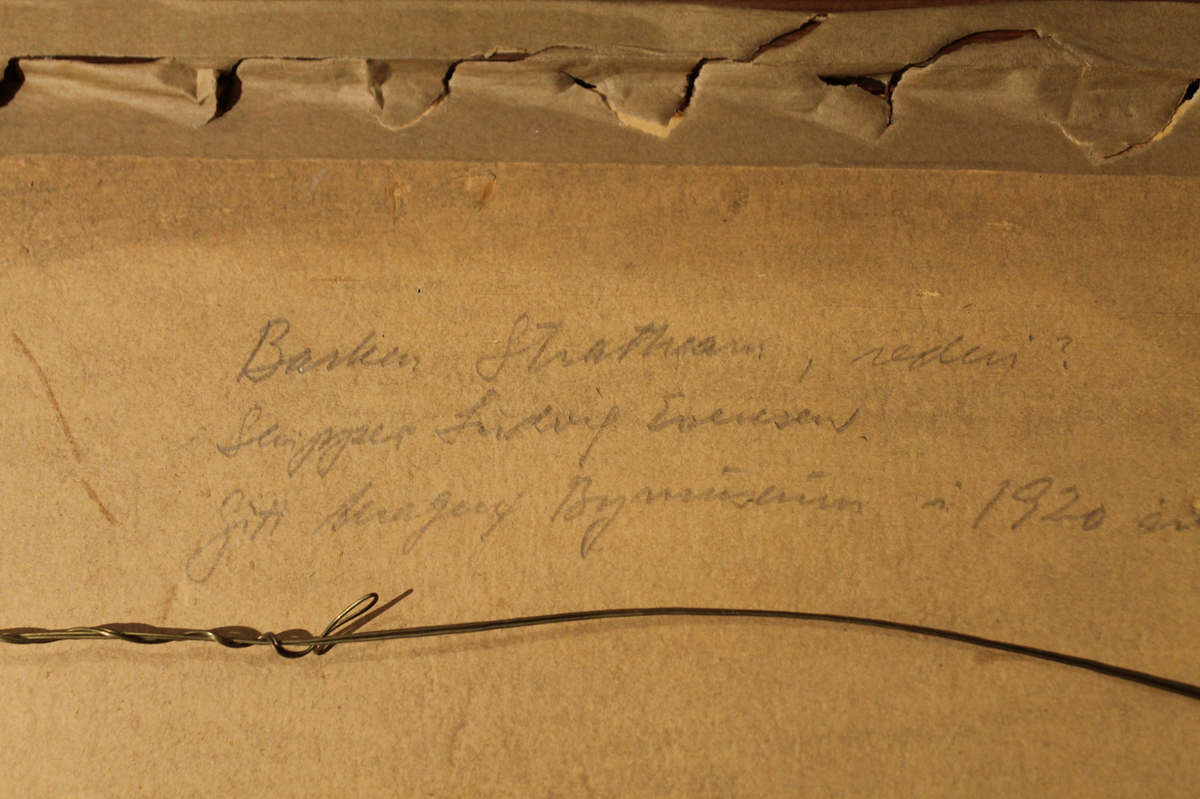 Barken Strathearn, rederi?
Skipper Ludvig Evensen
Gitt Bymuseum i 1920